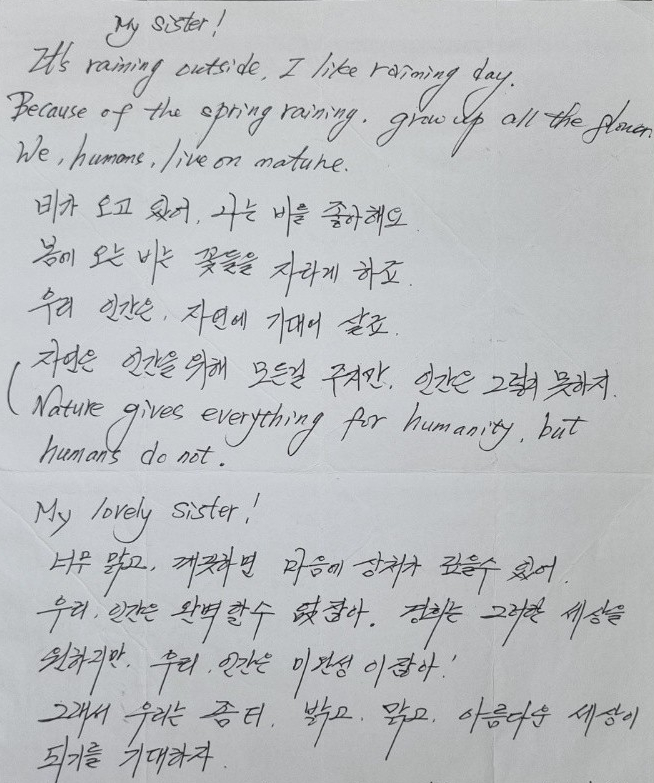 My sister!
It's raining outside, I like raining day.
Because of the spring raining. grow up all the flower.
We, humans, live on nature.
비가 오고 있어, 나는 비를 좋아해요.
봄에 오는 비는 꽃들을 자라게 하죠.
우리 인간은, 자연에 기대어 살죠.
자연은 인간을 위해 모든걸 주지만, 인간은 그렇지 못하지.
( Nature gives everything for humanity, but
humans do not.
My lovely sister!
너무 맑고, 깨끗하면 마음에 상처가 깊을수 있어.
우리, 인간은 완벽할수 없잖아. 경희는 그러한 세상을
원하지만, 우리, 인간은 미완성 이잖아!
그래서 우리는 좀 더, 밝고, 맑고, 아름다운 세상이
되기를 기대하자.